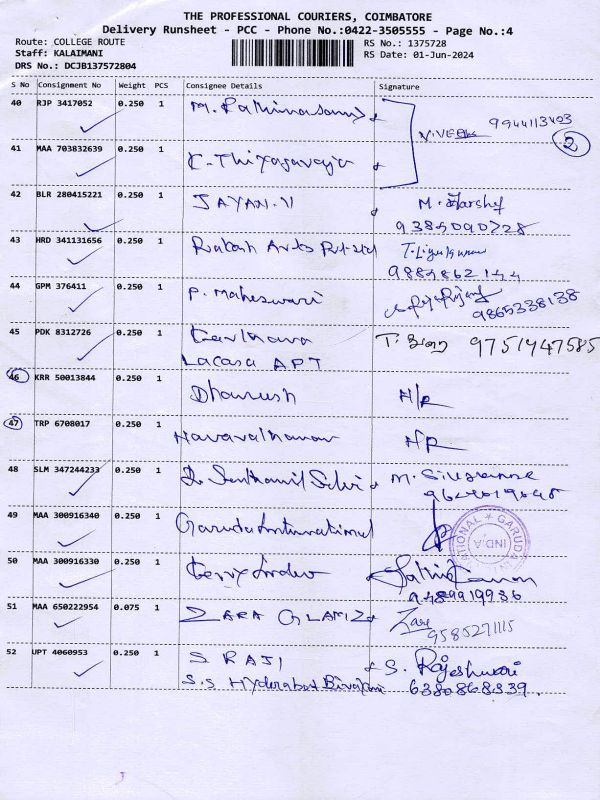 THE PROFESSIONAL COURIERS, COIMBATORE
Delivery Runsheet - PCC - Phone No.:0422-3505555 - Page No.:4
Route: COLLEGE ROUTE
Staff: KALAIMANI
DRS No.: DCJB137572804
RS No.: 1375728
RS Date: 01-Jun-2024
S No Consignment No Weight PCS Consignee Details Signature
40 RJP 3417052 0.250 1
9944113403
2
41 MAA 703832639 0.250 1 K. Thiyagaraja
42 BLR 280415221 0.250 1 JAYAN.V M.
43 HRD 341131656 0.250 1
44 GPM 376411 0.250 1 P. Maheswari
9865338138
45 PDK 8312726 0.250 1 9751747585
Lacasa APT
46 KRR 50013844 0.250 1 Dhanush N/R
47 TRP 6708017 0.250 1 N/R
48 SLM 347244233 0.250 1 M.
49 MAA 300916340 0.250 1 Garuda International
GARUDA INTERNATIONAL
INDIA
50 MAA 300916330 0.250 1
51 MAA 650222954 0.075 1 ZARA GLAMZ Zara
9585271115
52 UPT 4060953 0.250 1 S RAJI S. Rajeshwari
S.S Hyderabad Biryani